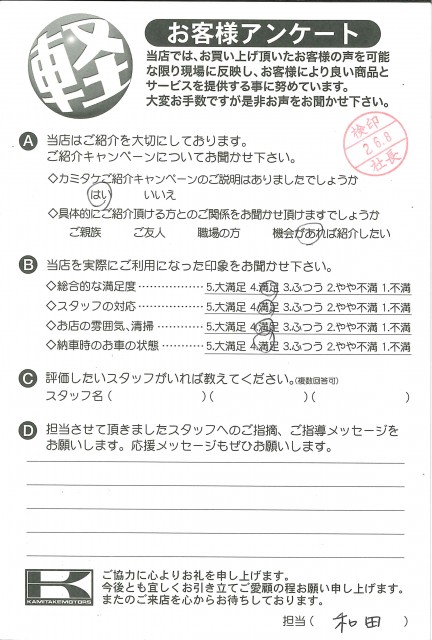 軽
お客様アンケート
当店では、お買い上げ頂いたお客様の声を可能
な限り現場に反映し、お客様により良い商品と
サービスを提供する事に努めています。
大変お手数ですが是非お声をお聞かせ下さい。
検印
2.6.8
社長
A 当店はご紹介を大切にしております。
ご紹介キャンペーンについてお聞かせ下さい。
◇カミタケご紹介キャンペーンのご説明はありましたでしょうか
はい いいえ
◇具体的にご紹介頂ける方とのご関係をお聞かせ頂けますでしょうか
ご親族 ご友人 職場の方 機会があれば紹介したい
B 当店を実際にご利用になった印象をお聞かせ下さい。
◇総合的な満足度 5.大満足 4.満足 3.ふつう 2.やや不満 1.不満
◇スタッフの対応 5.大満足 4.満足 3.ふつう 2.やや不満 1.不満
◇お店の雰囲気、清掃 5.大満足 4.満足 3.ふつう 2.やや不満 1.不満
◇納車時のお車の状態 5.大満足 4.満足 3.ふつう 2.やや不満 1.不満
C 評価したいスタッフがいれば教えてください。(複数回答可)
スタッフ名 ( )( )( )
D 担当させて頂きましたスタッフへのご指摘、ご指導メッセージを
お願いします。応援メッセージもぜひお願いします。
K
KAMITAKE MOTORS
ご協力に心よりお礼を申し上げます。
今後とも宜しくお引き立てご愛顧の程お願い申し上げます。
またのご来店を心からお待ちしております。
担当 ( 和田 )